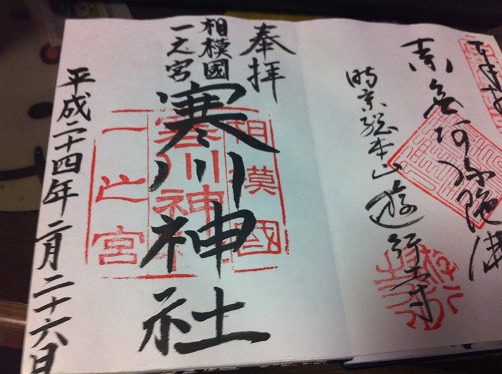 南無阿弥陀佛
時宗総本山 遊行寺
奉拝
相模國
一之宮
寒川神社
相模國
寒川神社
一之宮
平成二十四年二月二十六日